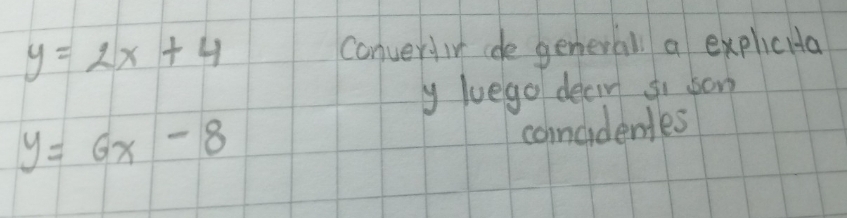 y = 2x + 4
Convertir de general a explicita
y luego decir si son
coincidentes
y = 6x - 8